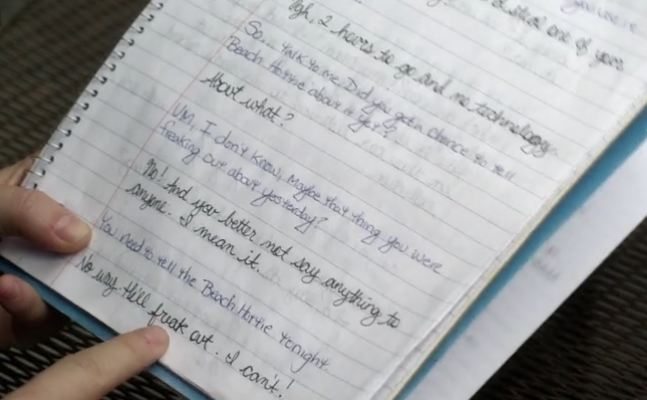 out of your
Ugh, 2 hours to go and no technology.
So... talk to me. Did you get a chance to tell
Beach Hottie about it yet??
About what?
Um, I don't know, Maybe that thing you were
freaking out about yesterday?
No! And you better not say anything to
anyone. I mean it.
You need to tell the Beach Hottie tonight.
No way He'll freak out. I can't!